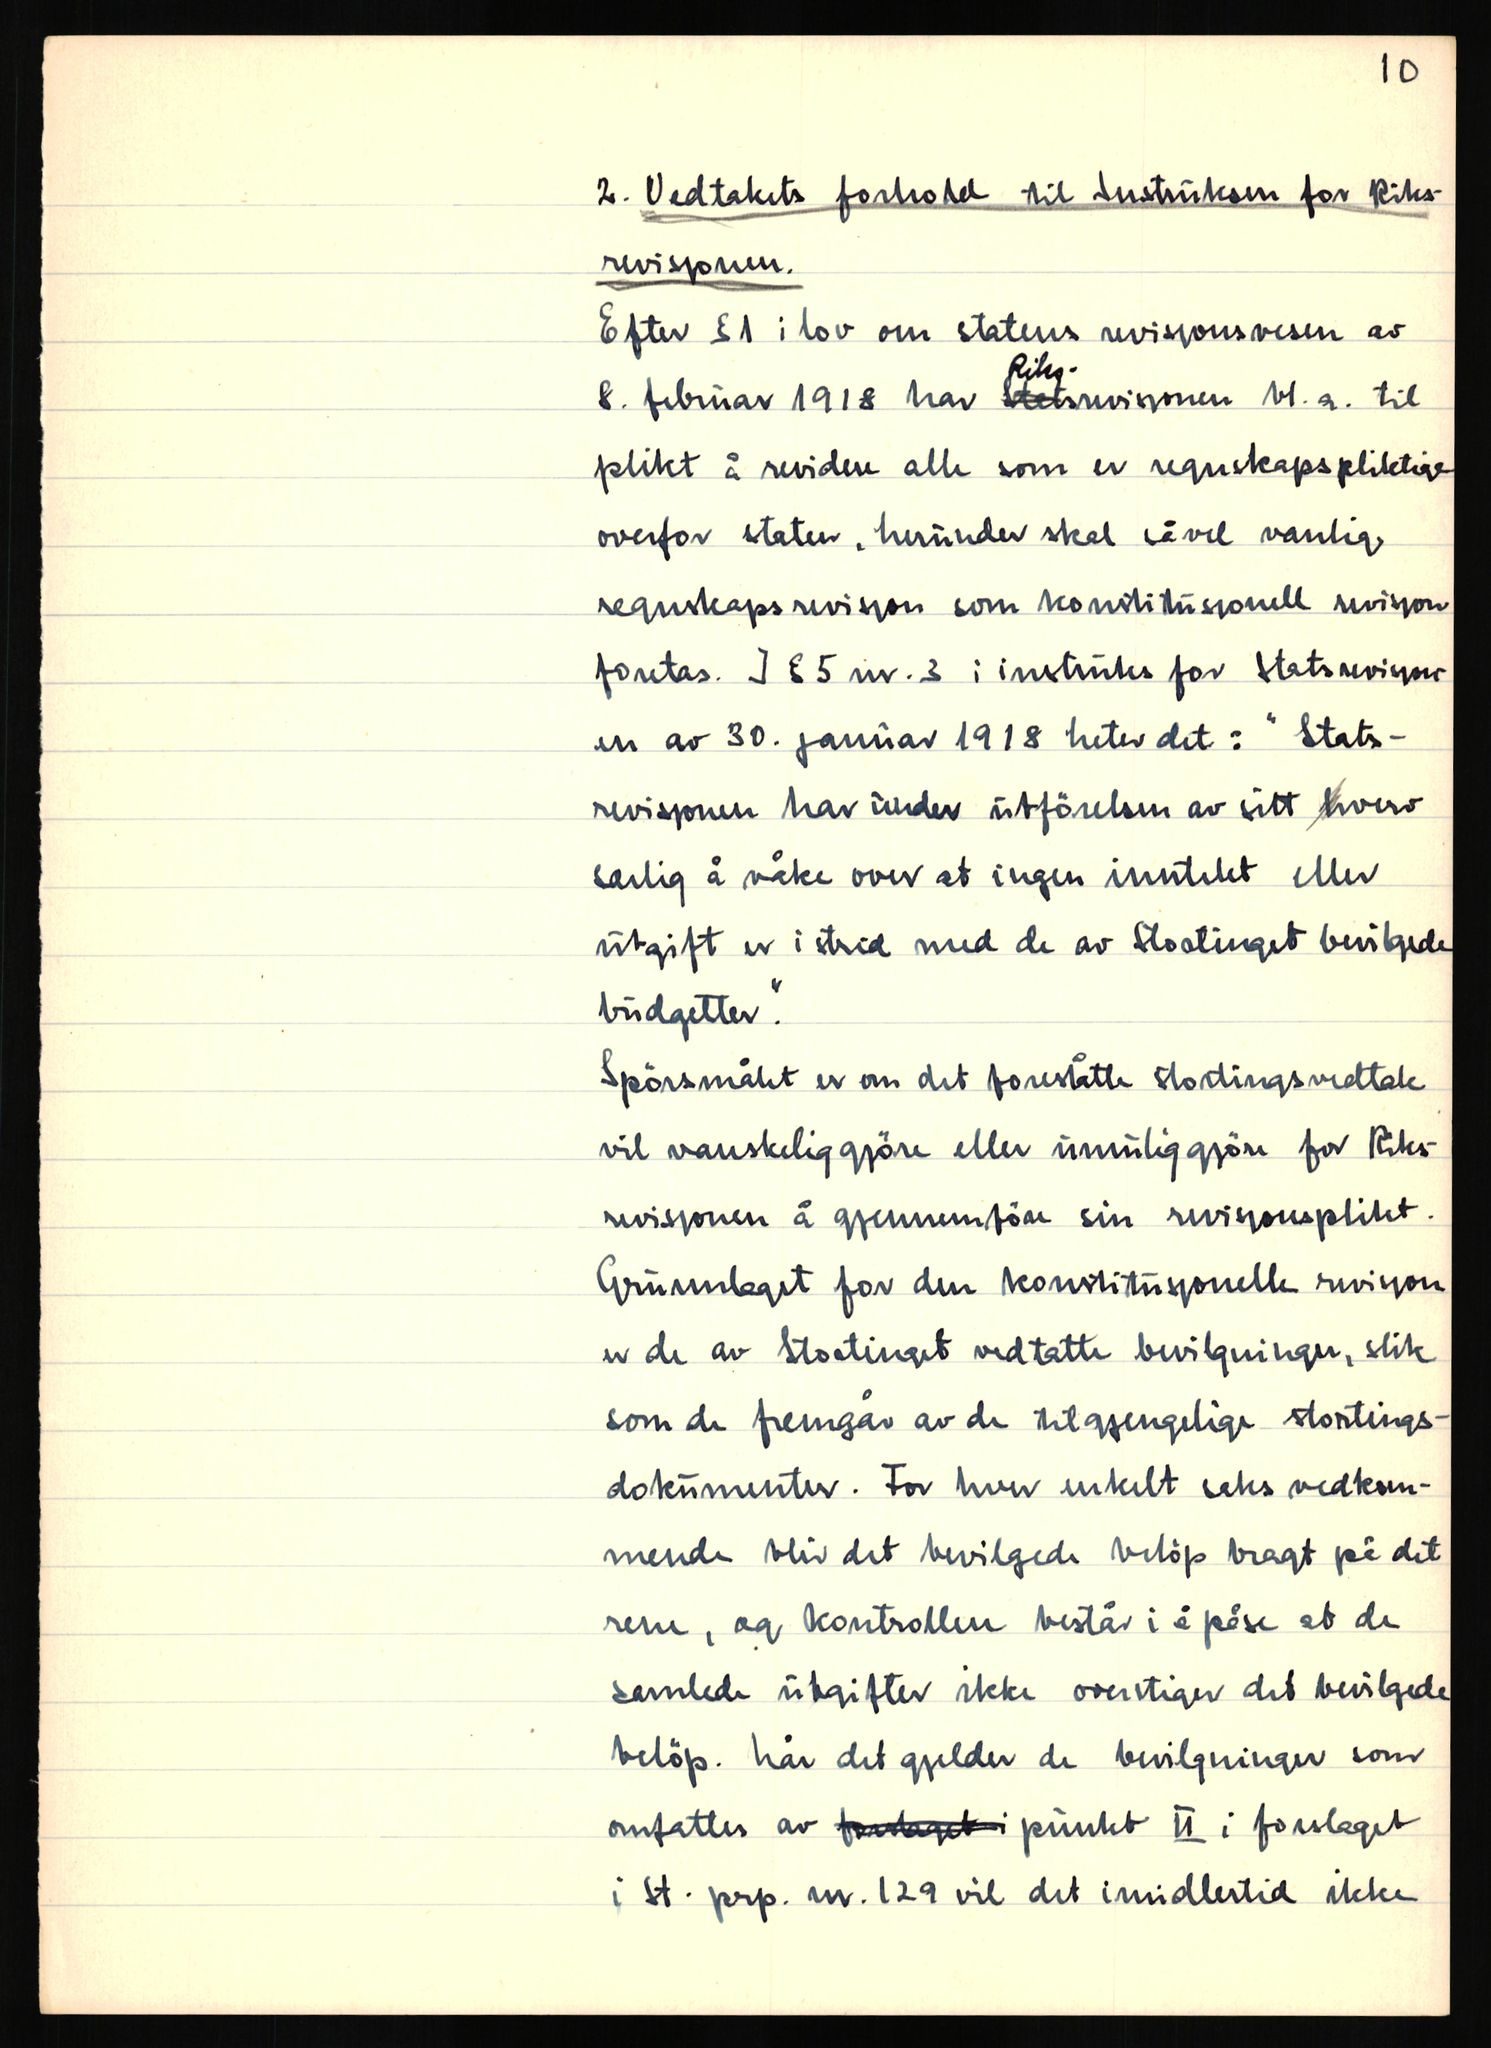 10
2. Vedtakets forhold til Instruksen for Riks-
revisjonen.
Efter § 1 i lov om statens revisjonsvesen av
Riks-
8. februar 1918 har Statsrevisjonen bl. a. til
plikt å revidere alle som er regnskapspliktige
overfor staten, herunder skal såvel vanlig
regnskapsrevisjon som konstitusjonell revisjon
foretas. I § 5 nr. 3 i instruks for Statsrevisjon-
en av 30. januar 1918 heter det: "Stats-
revisjonen har under utförelsen av sitt hverv
særlig å våke over at ingen inntekt eller
utgift er i strid med de av Stortinget bevilgede
budgetter."
Spörsmålet er om det foreslåtte stortingsvedtak
vil vanskeliggjöre eller umuliggjöre for Riks-
revisjonen å gjennemföre sin revisjonsplikt.
Grunnlaget for den konstitusjonelle revisjon
er de av Stortinget vedtatte bevilgninger, slik
som de fremgår av de tilgjengelige stortings-
dokumenter. For hver enkelt saks vedkom-
mende blir det bevilgede belöp bragt på det
rene, og kontrollen består i å påse at de
samlede utgifter ikke overstiger det bevilgede
belöp. Når det gjelder de bevilgninger som
omfattes av forslaget i punkt II i forslaget
i St. prp. nr. 129 vil det imidlertid ikke